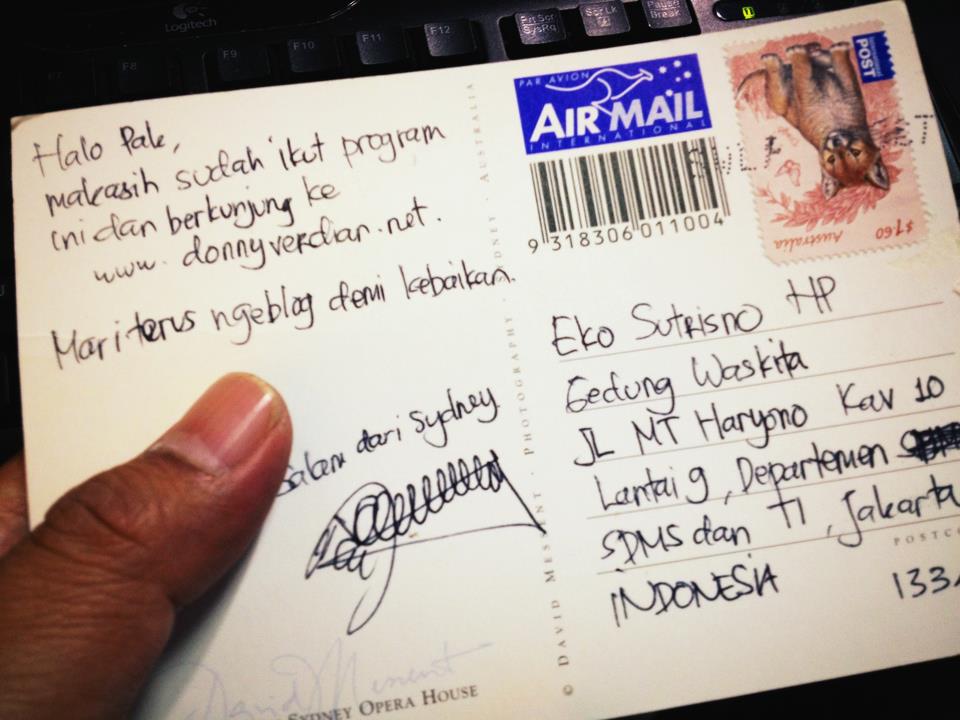 Logitech
F7
F8
F9
F10
F11
F12
Prt Scr
SysRq
Scr Lk
Pause
Break
Halo Pak,
makasih sudah ikut program
ini dan berkunjung ke
www.donnyverdian.net.
Mari terus ngeblog demi kebaikan.
Salam dari Sydney
SYDNEY OPERA HOUSE
© DAVID MESSENT · PHOTOGRAPHY · SYDNEY · AUSTRALIA
PAR AVION
AIR MAIL
INTERNATIONAL
9 318306 011004
POST
Australia
$1.60
Eko Sutrisno HP
Gedung Waskita
JL MT Haryono Kav 10
Lantai 9, Departemen
SDMS dan TI, Jakarta
POSTC
INDONESIA
133